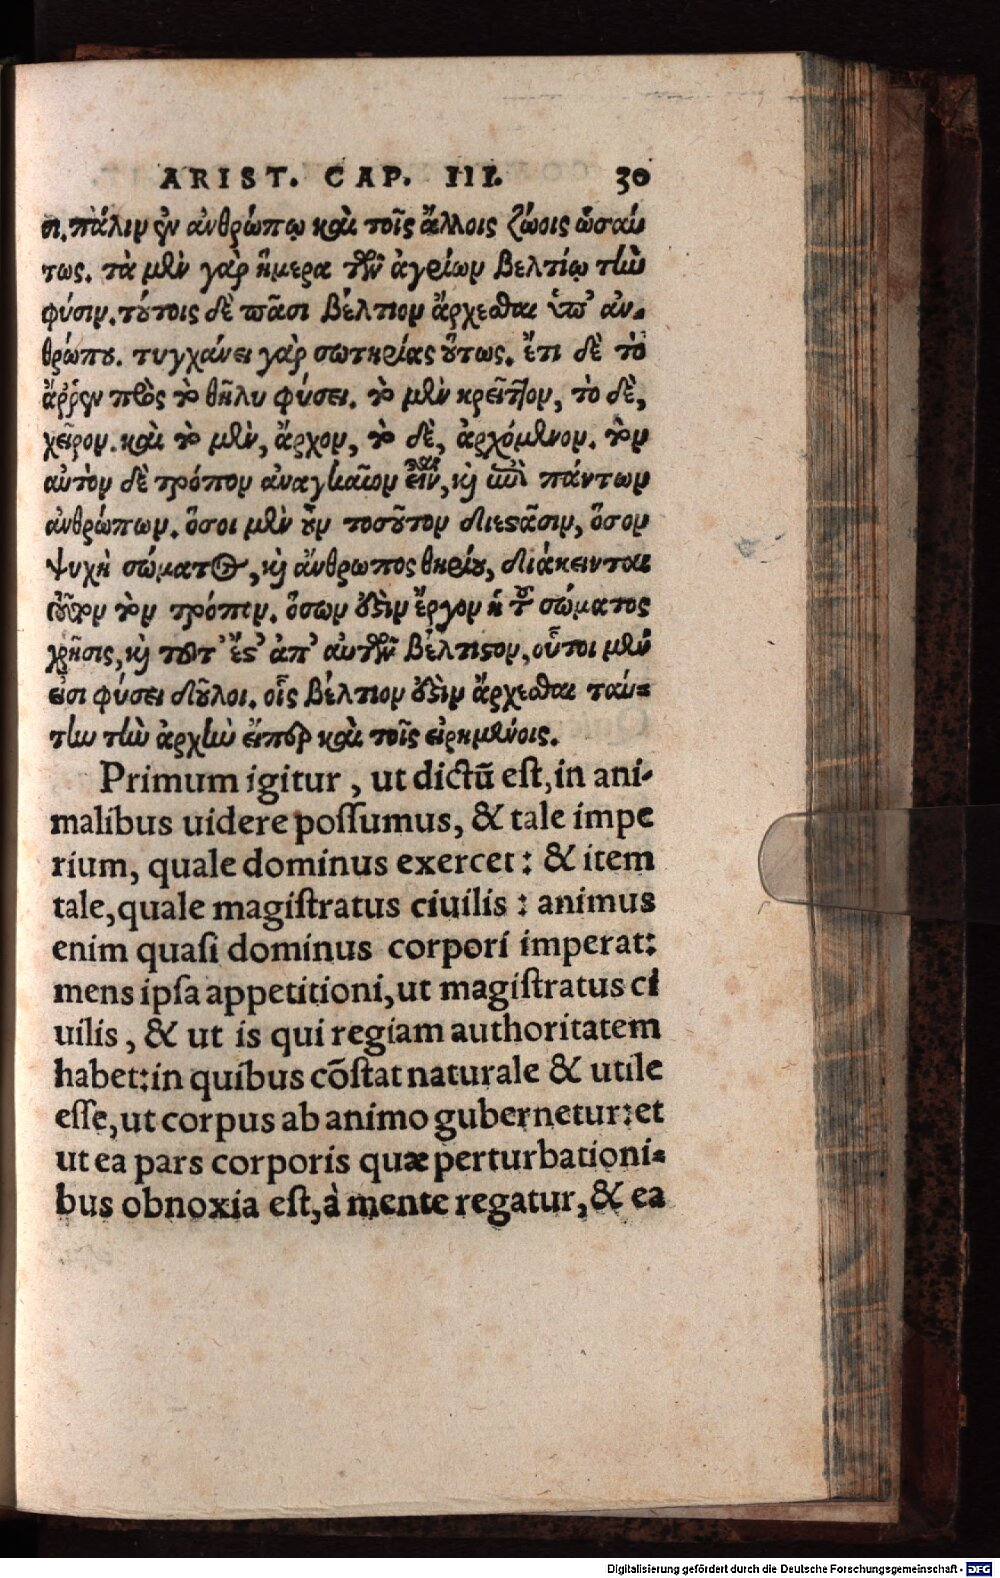 ARIST. CAP. III. 30
σι. πάλιν ἐν ἀνθρώπῳ καὶ τοῖς ἄλλοις ζώοις ὡσαύ
τως. τὰ μὲν γὰρ ἥμερα τῶν ἀγρίων βελτίω τὴν
φύσιν. τούτοις δὲ πᾶσι βέλτιον ἄρχεσθαι ὑπ' ἀν-
θρώπου. τυγχάνει γὰρ σωτηρίας οὕτως. ἔτι δὲ τὸ
ἄῤῥεν πρὸς τὸ θῆλυ φύσει. τὸ μὲν κρεῖττον, τὸ δὲ,
χεῖρον. καὶ τὸ μὲν, ἄρχον, τὸ δὲ, ἀρχόμενον. τὸν
αὐτὸν δὲ τρόπον ἀναγκαῖον εἶναι, καὶ ἐπὶ πάντων
ἀνθρώπων. ὅσοι μὲν οὖν τοσοῦτον διεστᾶσιν, ὅσον
ψυχὴ σώματος, καὶ ἄνθρωπος θηρίου, διάκεινται
τοῦτον τὸν τρόπον. ὅσων ἐστὶν ἔργον ἡ τοῦ σώματος
χρῆσις, καὶ τοῦτ' ἔστ' ἀπ' αὐτῶν βέλτιστον, οὗτοι μέν
εἰσι φύσει δοῦλοι. οἷς βέλτιον ἐστὶν ἄρχεσθαι ταύ-
την τὴν ἀρχὴν εἴπερ καὶ τοῖς εἰρημένοις.
Primum igitur, ut dictū est, in ani-
malibus uidere possumus, & tale impe
rium, quale dominus exercet: & item
tale, quale magistratus ciuilis: animus
enim quasi dominus corpori imperat:
mens ipsa appetitioni, ut magistratus ci
uilis, & ut is qui regiam authoritatem
habet: in quibus cōstat naturale & utile
esse, ut corpus ab animo gubernetur: et
ut ea pars corporis quæ perturbationi-
bus obnoxia est, à mente regatur, & ea
Digitalisierung gefördert durch die Deutsche Forschungsgemeinschaft - DFG